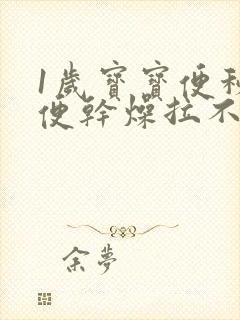 1歲寶寶便秘
便幹燥拉不
余夢